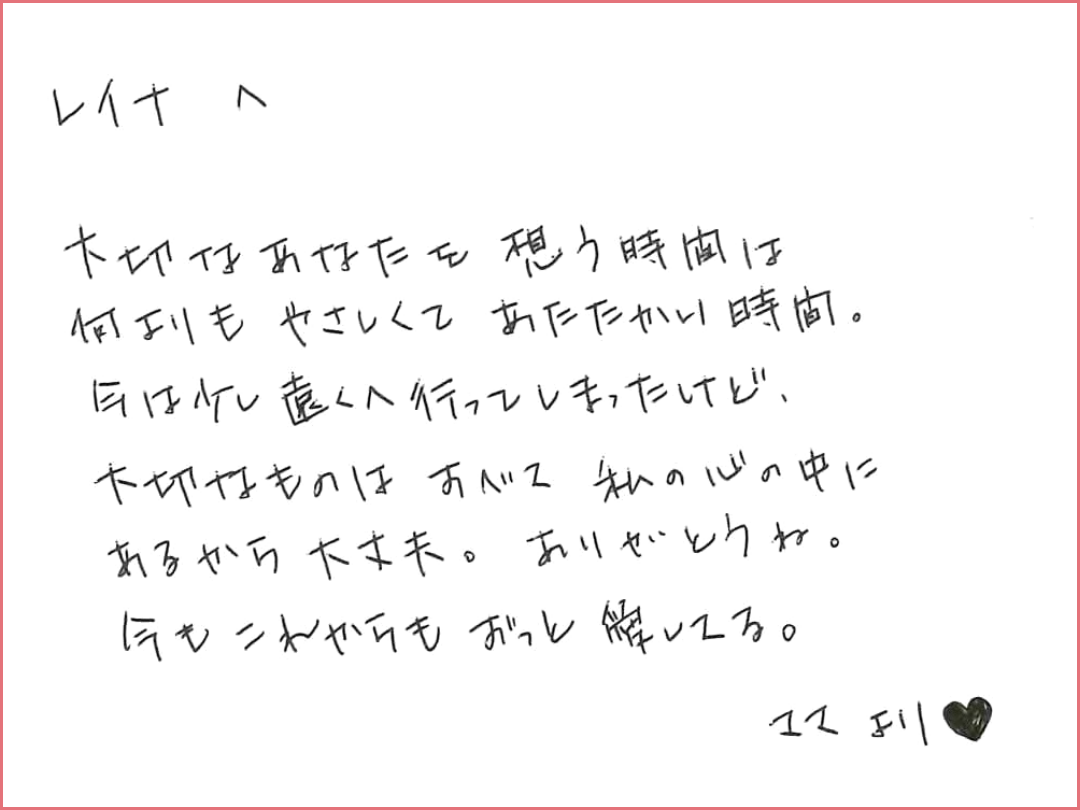 レイナ へ
大切なあなたを 想う時間は
何よりも やさしくて あたたかい時間。
今は少し遠くへ行ってしまったけど、
大切なものは すべて 私の心の中に
あるから大丈夫。 ありがとうね。
今も これからも ずっと
より♥